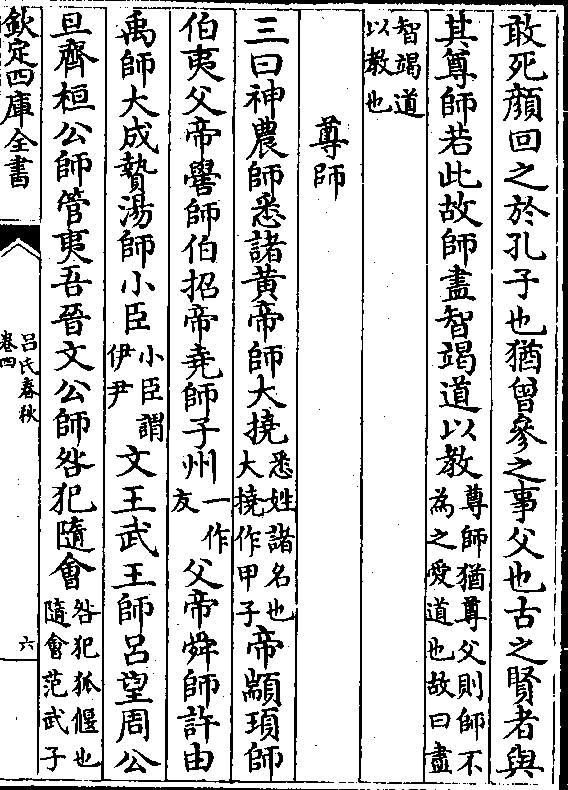 敢死顔回之於孔子也猶曾參之事父也古之賢者與
其尊師若此故師盡智竭道以教尊師猶尊父則師不
為之愛道也故曰盡
智竭道
以教也
尊師
三曰神農師悉諸黃帝師大撓悉姓諸名也
大撓作甲子帝顓頊師
伯夷父帝嚳師伯招帝堯師子州一作
友父帝舜師許由
禹師大成贄湯師小臣小臣謂
伊尹文王武王師呂望周公
旦齊桓公師管夷吾晉文公師咎犯隨會咎犯狐偃也
隨會范武子
欽定四庫全書
呂氏春秋
卷四
六